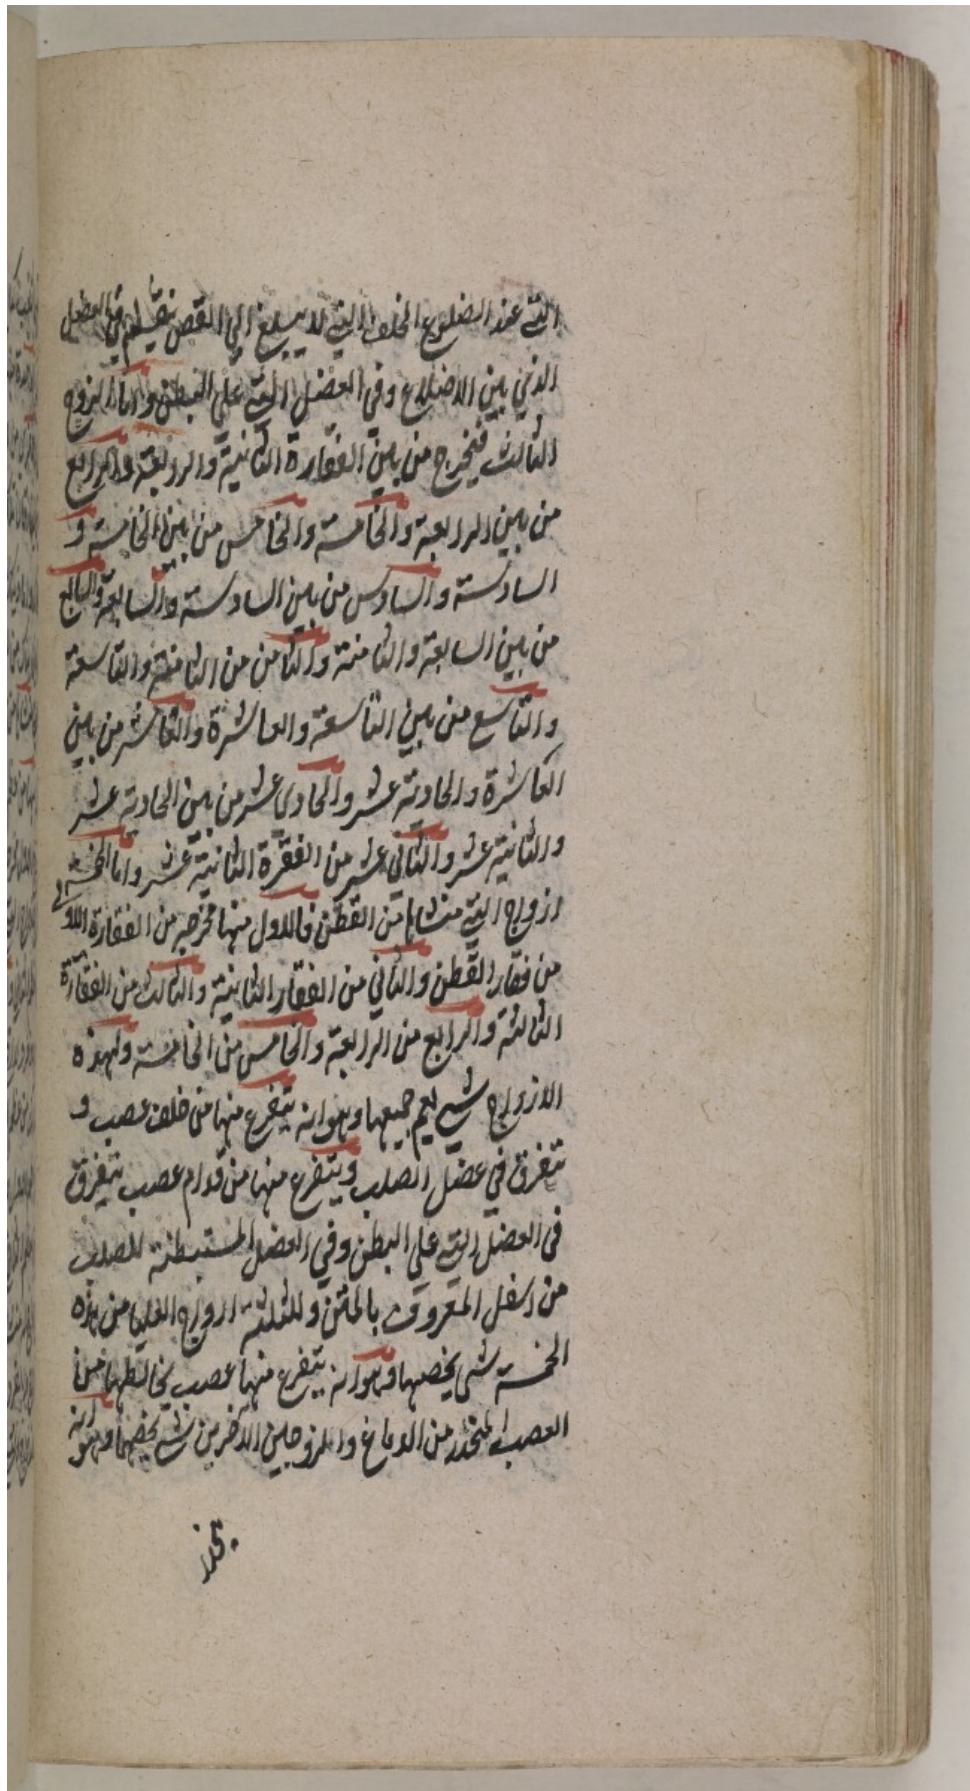 التي عند الضلوع الخلف التي لا يبلغ الي القص ينقسم في العضل
الذي بين الاضلاع وفي العضل التي علي البطن واما الزوج
الثالث فيخرج من بين الفقارة الثانية والرابعة والرابع
من بين الرابعة والخامسة والخامس من بين الخامسة و
السادسة والسادس من بين السادسة والسابعة والسابع
من بين السابعة والثامنة والثامن من الثامنة والتاسعة
والتاسع من بين التاسعة والعاشرة والعاشر من بين
العاشرة والحادية عشر والحادي عشر من بين الحادية عشر
والثانية عشر والثاني عشر من الفقرة الثانية عشر واما الخمسة
ازواج التي منشاها من القطن فالاول منها مخرجه من الفقارة الاولي
من فقار القطن والثاني من الفقار الثانية والثالث من الفقارة
الثالثة والرابع من الرابعة والخامس من الخامسة ولهذه
الازواج شي يعم جميعها وهو انه يتفرع منها من خلف عصب و
تتفرق في عضل الصلب ويتفرع منها من قدام عصب يتفرق
في العضل التي علي البطن وفي العضل المستبطنة للصلب
من اسفل المعروف بالمتن وللثلثة ازواج العليا من هذه
الخمسة شي يخصها وهو انه يتفرع منها عصب يخالطها من
العصب المنحدر من الدماغ وللزوجين الاخرين شي يخصهما وهو انه
ينحدر